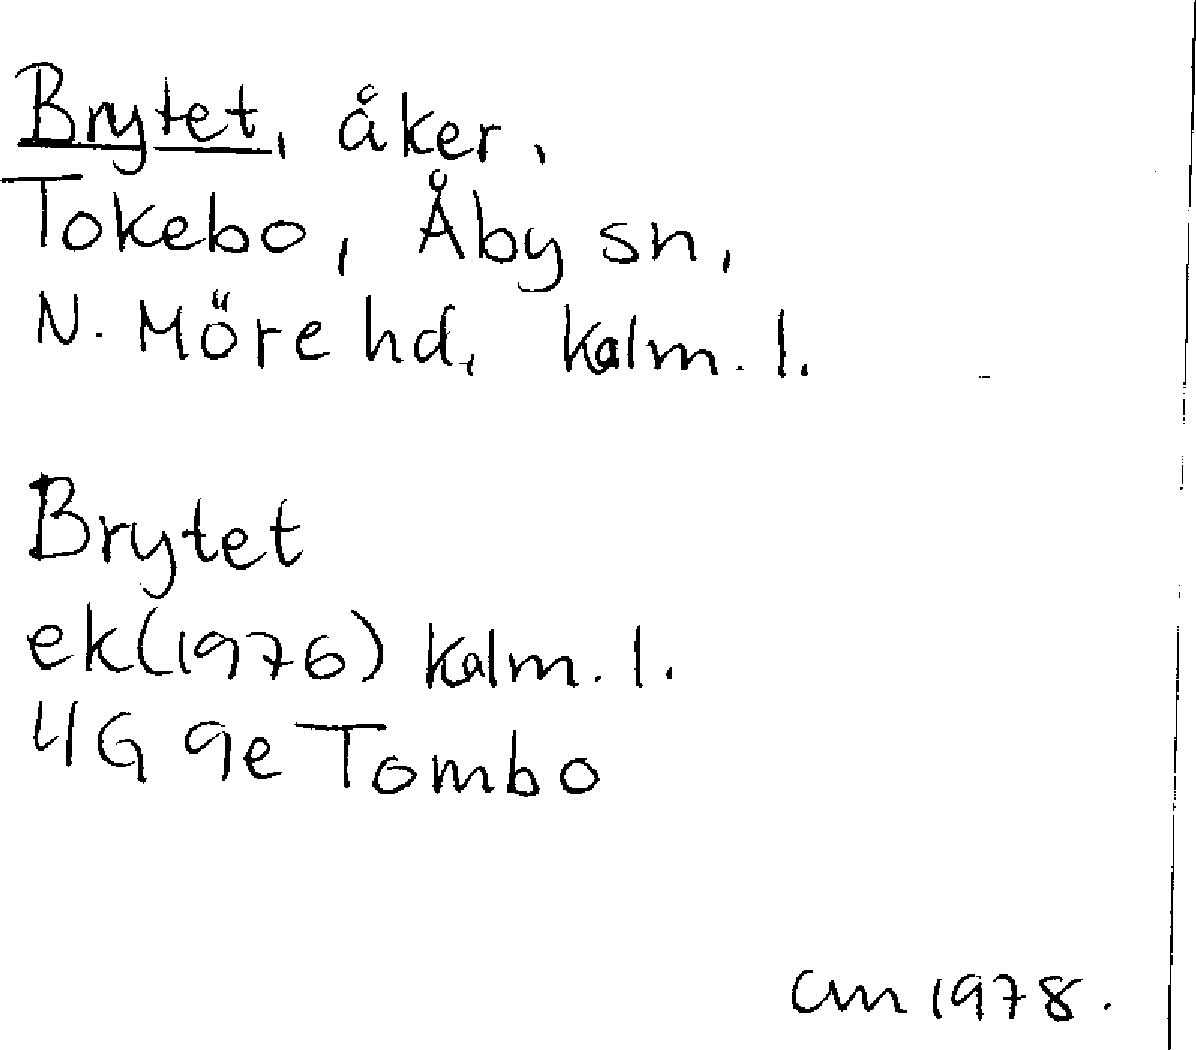 Brytet, åker,
Tokebo, Åby sn,
N. Möre hd, Kalm. l.
Brytet
ek(1976) Kalm. l.
4G 9e Tombo
Cm 1978.